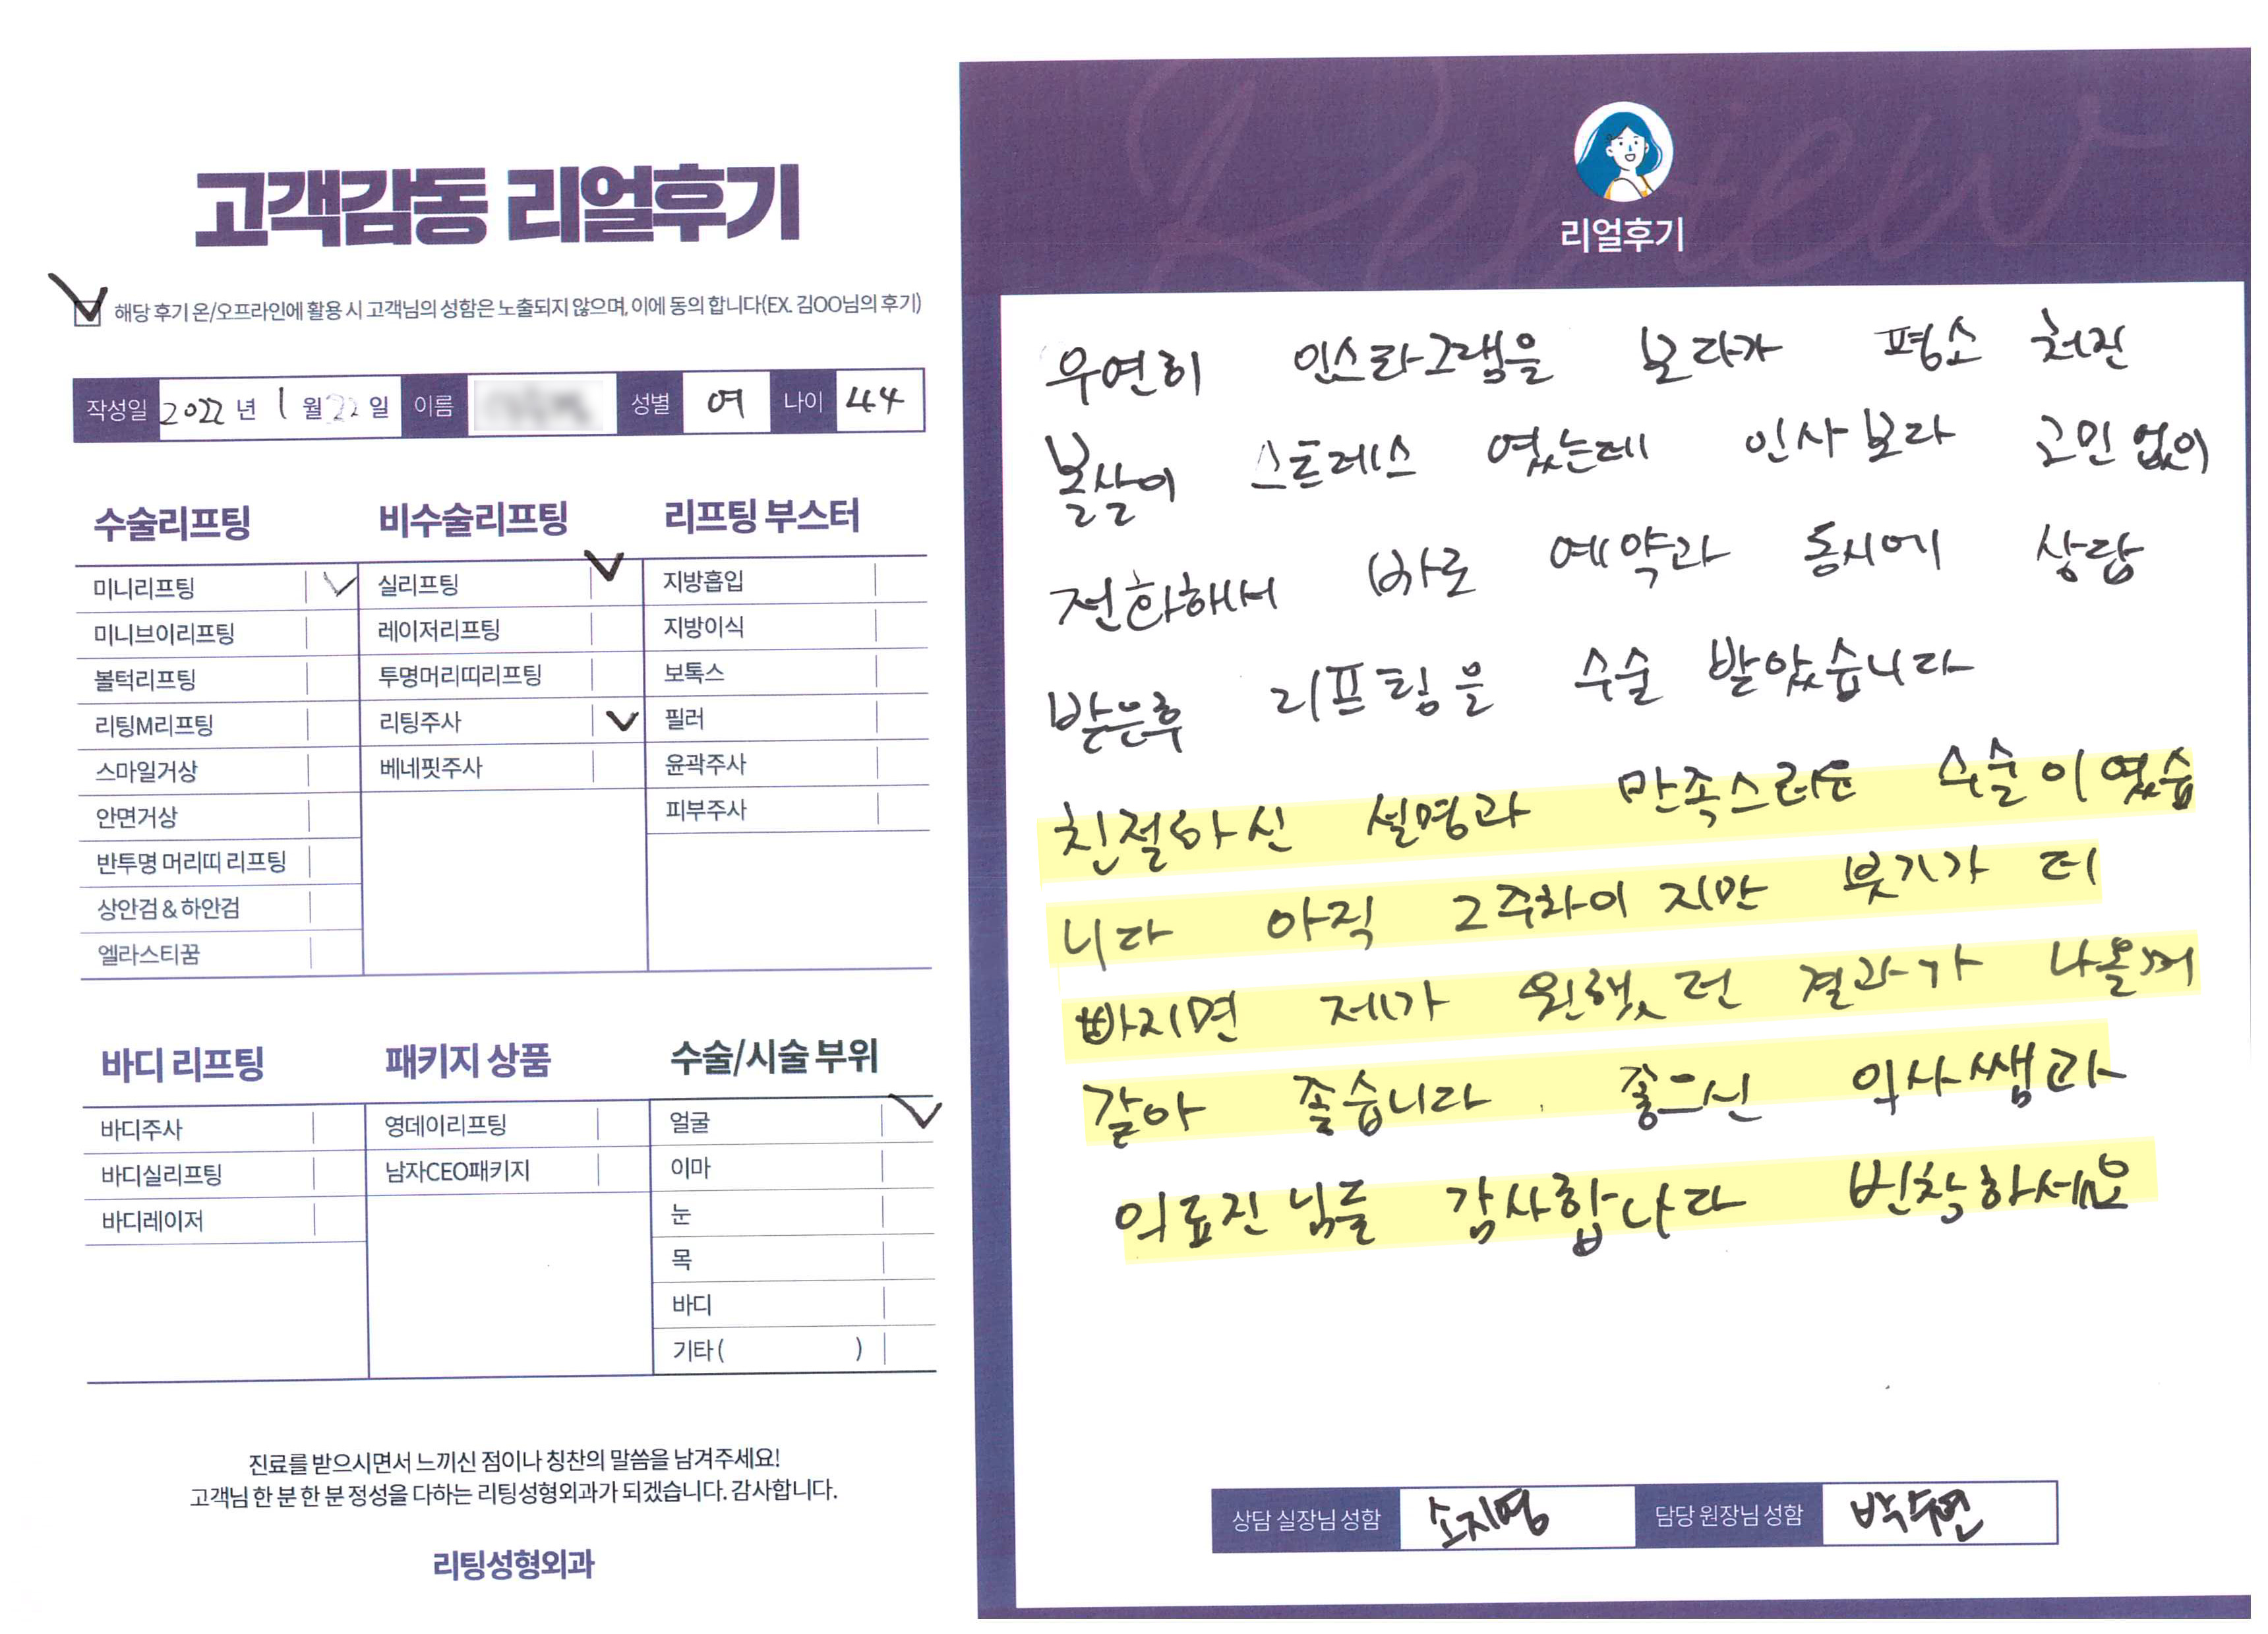 고객감동 리얼후기
해당 후기 온/오프라인에 활용 시 고객님의 성함은 노출되지 않으며, 이에 동의 합니다(EX. 김OO님의 후기)
작성일 2022 년 1 월 22 일 이름 성별 여 나이 44
수술리프팅
미니리프팅
미니브이리프팅
볼턱리프팅
리팅M리프팅
스마일거상
안면거상
반투명 머리띠 리프팅
상안검 & 하안검
엘라스티꿈
비수술리프팅
실리프팅
레이저리프팅
투명머리띠리프팅
리팅주사
베네핏주사
리프팅 부스터
지방흡입
지방이식
보톡스
필러
윤곽주사
피부주사
바디 리프팅
바디주사
바디실리프팅
바디레이저
패키지 상품
영데이리프팅
남자CEO패키지
수술/시술 부위
얼굴
이마
눈
목
바디
기타 ( )
진료를 받으시면서 느끼신 점이나 칭찬의 말씀을 남겨주세요!
고객님 한 분 한 분 정성을 다하는 리팅성형외과가 되겠습니다. 감사합니다.
리팅성형외과
Review
리얼후기
우연히 인스타그램을 보다가 평소 처진
볼살이 스트레스 였는데 인사보다 고민없이
전화해서 바로 예약과 동시에 상담
받은후 리프팅을 수술 받았습니다
친절하신 설명과 만족스러운 수술이였습
니다 아직 2주차이지만 붓기가 더
빠지면 제가 원했던 결과가 나올꺼
같아 좋습니다. 좋으신 의사쌤과
의료진님들 감사합니다 번창하세요
상담 실장님 성함 소지영 담당 원장님 성함 박수연